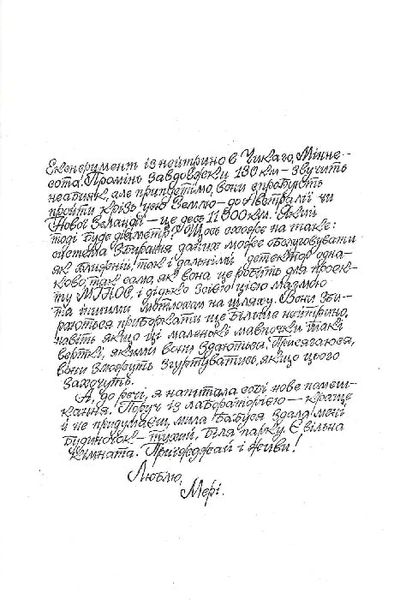 Експеримент із нейтрино в Чикаго, Мінне-
сота! Промінь завдовжки 130 км — звучить
неабияк, але припустімо, вони спробують
пройти крізь усю Землю — до Австралії чи
Нової Зеландії — це десь 11 000 км. Який
тоді буде діаметр? Щось схоже на таке:
система збирання даних може обслуговувати
як ближній, так і дальній детектор одна-
ково, так само, як вона це робить для проек-
ту МІНОС, і дідько з всією цією магмою
та іншим мотлохом на шляху. Вони зби-
раються приборкати ще більше нейтрино,
навіть якщо ці маленькі мавпочки такі
верткі, якими вони здаються. Присягаюся,
вони зможуть згуртуватись, якщо цього
захочуть.
А, до речі, я напитала собі нове помеш-
кання. Поруч із лабораторією — краще
й не придумаєш, мила бабуся здала мені
будиночок — тихий, біля парку. Є вільна
кімната. Приїжджай і живи!
Люблю,
Мері.